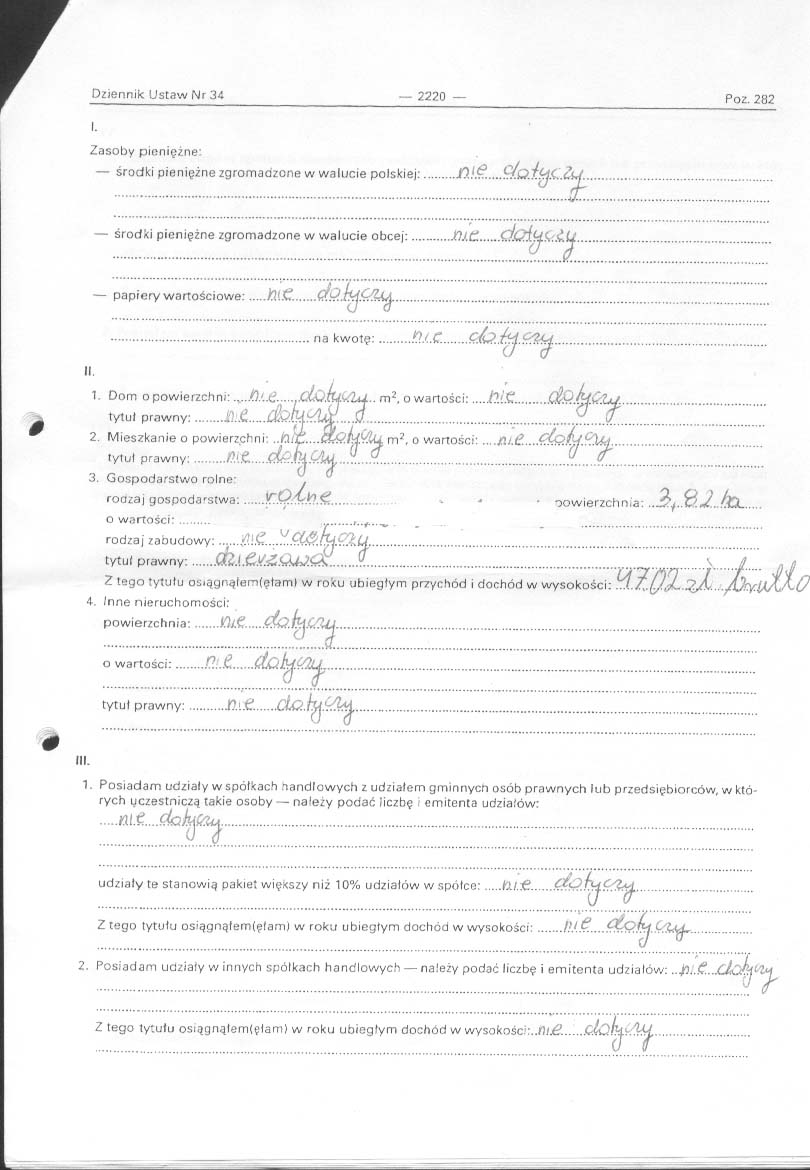 Dziennik Ustaw Nr 34 — 2220 — Poz. 282
I.
Zasoby pieniężne:
— środki pieniężne zgromadzone w walucie polskiej: nie dotyczy
— środki pieniężne zgromadzone w walucie obcej: nie dotyczy
— papiery wartościowe: nie dotyczy
na kwotę: nie dotyczy
II.
1. Dom o powierzchni: nie dotyczy m², o wartości: nie dotyczy
tytuł prawny: nie dotyczy
2. Mieszkanie o powierzchni: nie dotyczy m², o wartości: nie dotyczy
tytuł prawny: nie dotyczy
3. Gospodarstwo rolne:
rodzaj gospodarstwa: rolne powierzchnia: 3,82 ha
o wartości:
rodzaj zabudowy: nie dotyczy
tytuł prawny: dzierżawa
Z tego tytułu osiągnąłem(ęłam) w roku ubiegłym przychód i dochód w wysokości: 4702 zł brutto
4. Inne nieruchomości:
powierzchnia: nie dotyczy
o wartości: nie dotyczy
tytuł prawny: nie dotyczy
III.
1. Posiadam udziały w spółkach handlowych z udziałem gminnych osób prawnych lub przedsiębiorców, w któ-
rych uczestniczą takie osoby — należy podać liczbę i emitenta udziałów:
nie dotyczy
udziały te stanowią pakiet większy niż 10% udziałów w spółce: nie dotyczy
Z tego tytułu osiągnąłem(ęłam) w roku ubiegłym dochód w wysokości: nie dotyczy
2. Posiadam udziały w innych spółkach handlowych — należy podać liczbę i emitenta udziałów: nie dotyczy
Z tego tytułu osiągnąłem(ęłam) w roku ubiegłym dochód w wysokości: nie dotyczy